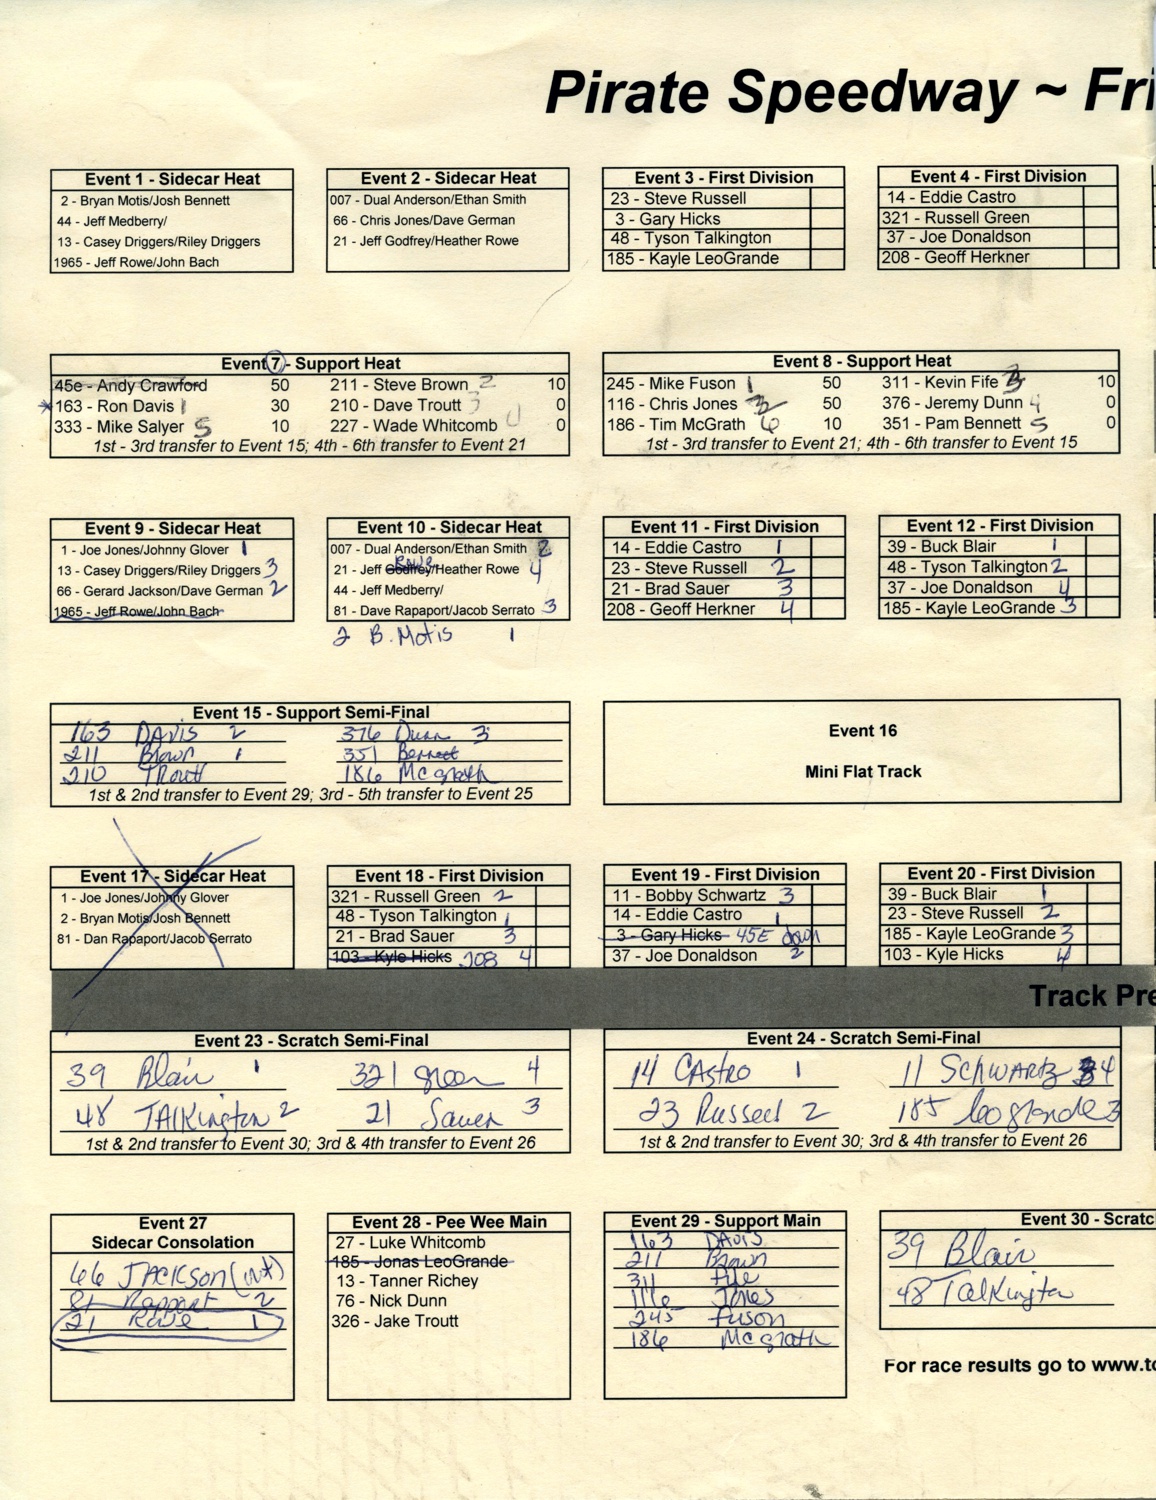 Pirate Speedway ~ Fri
Event 1 - Sidecar Heat
2 - Bryan Motis/Josh Bennett
44 - Jeff Medberry/
13 - Casey Driggers/Riley Driggers
1965 - Jeff Rowe/John Bach
Event 2 - Sidecar Heat
007 - Dual Anderson/Ethan Smith
66 - Chris Jones/Dave German
21 - Jeff Godfrey/Heather Rowe
Event 3 - First Division
23 - Steve Russell
3 - Gary Hicks
48 - Tyson Talkington
185 - Kayle LeoGrande
Event 4 - First Division
14 - Eddie Castro
321 - Russell Green
37 - Joe Donaldson
208 - Geoff Herkner
Event 7 - Support Heat
45e - Andy Crawford 50 211 - Steve Brown 2 10
163 - Ron Davis 1 30 210 - Dave Troutt 3 0
333 - Mike Salyer 5 10 227 - Wade Whitcomb 0
1st - 3rd transfer to Event 15; 4th - 6th transfer to Event 21
Event 8 - Support Heat
245 - Mike Fuson 1 50 311 - Kevin Fife 10
116 - Chris Jones 50 376 - Jeremy Dunn 4 0
186 - Tim McGrath 6 10 351 - Pam Bennett 5 0
1st - 3rd transfer to Event 21; 4th - 6th transfer to Event 15
Event 9 - Sidecar Heat
1 - Joe Jones/Johnny Glover 1
13 - Casey Driggers/Riley Driggers 3
66 - Gerard Jackson/Dave German 2
1965 - Jeff Rowe/John Bach
Event 10 - Sidecar Heat
007 - Dual Anderson/Ethan Smith 2
21 - Jeff Godfrey/Heather Rowe 4
44 - Jeff Medberry/
81 - Dave Rapaport/Jacob Serrato 3
2 B. Motis 1
Event 11 - First Division
14 - Eddie Castro 1
23 - Steve Russell 2
21 - Brad Sauer 3
208 - Geoff Herkner 4
Event 12 - First Division
39 - Buck Blair 1
48 - Tyson Talkington 2
37 - Joe Donaldson 4
185 - Kayle LeoGrande 3
Event 15 - Support Semi-Final
163 DAVIS 2 376 Dunn 3
211 Brown 1 351 Bennett
210 Troutt 186 McGrath
1st & 2nd transfer to Event 29; 3rd - 5th transfer to Event 25
Event 16
Mini Flat Track
Event 17 - Sidecar Heat
1 - Joe Jones/Johnny Glover
2 - Bryan Motis/Josh Bennett
81 - Dan Rapaport/Jacob Serrato
Event 18 - First Division
321 - Russell Green 2
48 - Tyson Talkington 1
21 - Brad Sauer 3
103 - Kyle Hicks 208 4
Event 19 - First Division
11 - Bobby Schwartz 3
14 - Eddie Castro 1
3 - Gary Hicks 45E
37 - Joe Donaldson 2
Event 20 - First Division
39 - Buck Blair 1
23 - Steve Russell 2
185 - Kayle LeoGrande 3
103 - Kyle Hicks 4
Track Pre
Event 23 - Scratch Semi-Final
39 Blair 1 321 Green 4
48 TALKington 2 21 Sauer 3
1st & 2nd transfer to Event 30; 3rd & 4th transfer to Event 26
Event 24 - Scratch Semi-Final
14 CAstro 1 11 SCHWARTZ 4
23 Russell 2 185 leogrande 3
1st & 2nd transfer to Event 30; 3rd & 4th transfer to Event 26
Event 27
Sidecar Consolation
66 JACKSON
81 Rapport 2
21 Rowe 1
Event 28 - Pee Wee Main
27 - Luke Whitcomb
185 - Jonas LeoGrande
13 - Tanner Richey
76 - Nick Dunn
326 - Jake Troutt
Event 29 - Support Main
163 DAVIS
211 Brown
311 Fife
116 Jones
245 Fuson
186 McGrath
Event 30 - Scratc
39 Blair
48 Talkington
For race results go to www.to